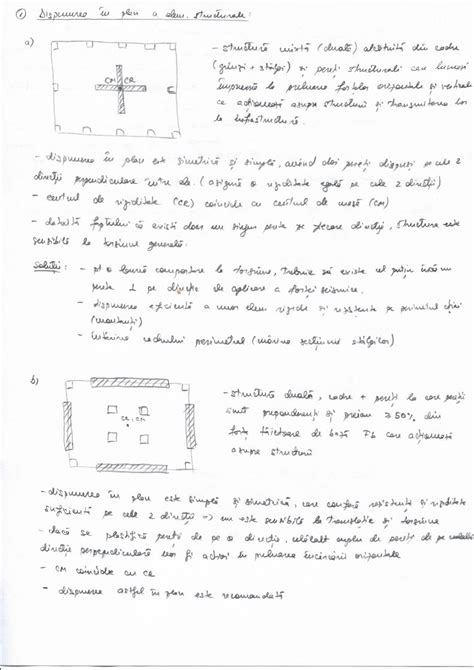 ① Dispunerea în plan a elem. structurale:
a)
CM CR
- structură mixtă (duală) alcătuită din cadre
(grinzi + stâlpi) și pereți structurali care lucrează
împreună la preluarea forțelor orizontale și verticale
ce acționează asupra structurii și transmiterea lor
la infrastructură.
- dispunerea în plan este simetrică și simplă, având doi pereți dispuși pe cele 2
direcții perpendiculare între ele. (asigură o rigiditate egală pe cele 2 direcții)
- centrul de rigiditate (CR) coincide cu centrul de masă (CM)
- datorită faptului că există doar un singur perete pe fiecare direcție, structura este
sensibilă la torsiune generală.
Soluții: - pt o bună comportare la torsiune, trebuie să existe cel puțin încă un
perete ⊥ pe direcție de aplicare a forței seismice.
- dispunerea eficientă a unor elem rigide și rezistente pe perimetrul clădirii
(montanți)
- întărirea cadrului perimetral (mărirea secțiunii stâlpilor)
b)
CR, CM
- structură duală, cadre + pereți la care pereții
sunt preponderenți și preiau ≥ 50% din
forța tăietoare de bază Fb care acționează
asupra structurii
- dispunerea în plan este simplă și simetrică, care conferă rezistență și rigiditate
suficientă pe cele 2 direcții => nu este sensibilă la translație și torsiune
- dacă se plastifică pereții de pe o direcție, celălalt cuplu de pereți de pe cealaltă
direcție perpendiculară vor fi activi în preluarea încărcării orizontale
- CM coincide cu CR
- dispunerea astfel în plan este recomandată